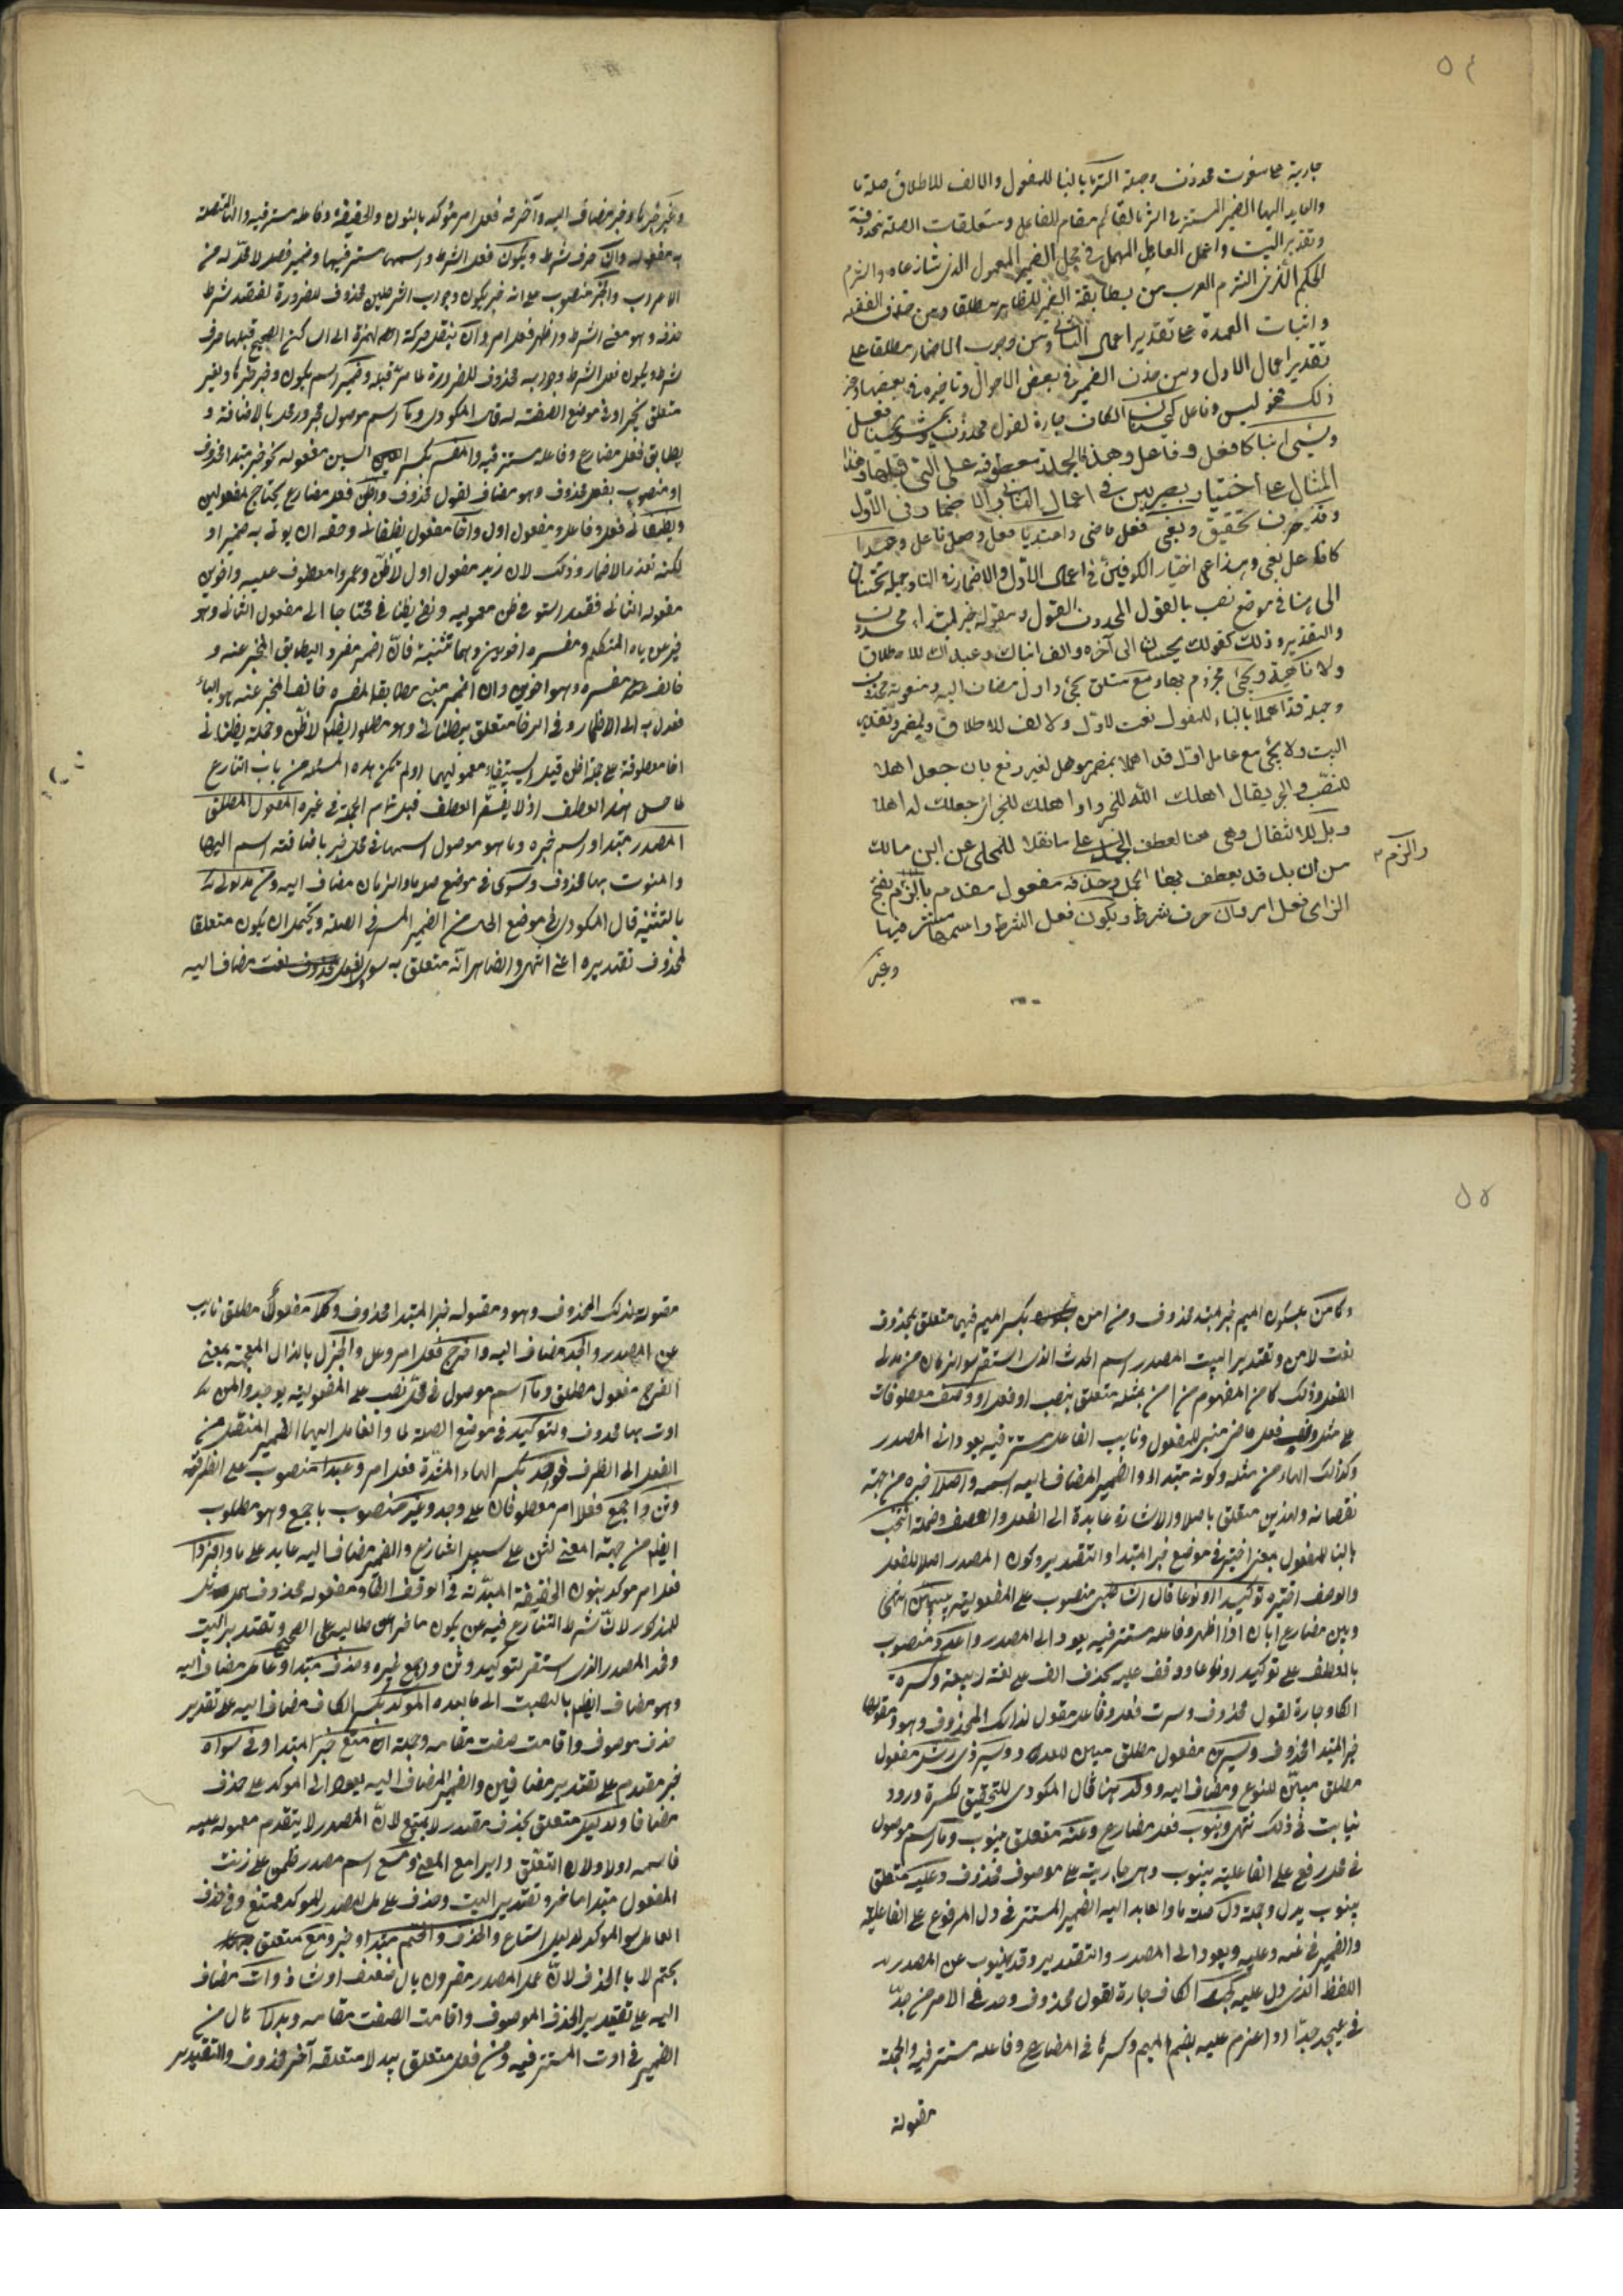 ٥٤
جارية على منعوت محذوف وجملة التزما بالبنا للمفعول والالف للاطلاق صلة ما
والعايد اليها الضمير المستتر في التزما القائم مقام الفاعل ومتعلقات الصلة محذوفة
وتقدير البيت واعمل العامل المهمل في محل الضمير المعمول الذي تنازعاه والتزم
الحكم الذي التزم العرب من مطابقة الضمير للظاهر مطلقا ومن حذف الفضلة
واثبات العمدة على تقدير اعمال الثاني ومن وجوب الاضمار مطلقا على
تقدير اعمال الاول ومن حذف الضمير في بعض الاحوال وتاخيره في بعضها وغير
ذلك نحو ليس وفاعل كيحسنان الكاف جارة لقول محذوف ويحسنان فعل
ويسيء ابناكا فعل وفاعل وهذه الجملة معطوفة على التي قبلها وهذا
المثال على اختيار بصريين في اعمال الثاني والاضمار في الاول
وقد حرف تحقيق وبغى فعل ماضي واعتديا فعل وفاعل وعبدا
كافاعل بغى وهذا على اختيار الكوفيين في اعمال الاول والاضمار في الثا وجملة يحسنان
الى هنا في موضع نصب بالقول المحذوف القول ومقوله خبر لمبتداء محذوف
والتقدير وذلك كقولك يحسنان الى آخره والف ابناك وعبداك للاطلاق
ولا ناهية وتجئ مجزوم بها ومع متعلق بتجئ واول مضاف اليه ومنعوته محذوف
وجملة قد اهملا بالبناء للمفعول نعت لاول والالف للاطلاق وبمضمر وتقدير
البيت ولا تجئ مع عامل اول قد اهملا بمضمر موهل لغير رفع بان جعل اهلا
للنصب والجر يقال اهلك الله للخير واوهلك للخير اي جعلك له اهلا
وبل للانتقال وهي هنا لعطف الجمل على ما نقله المحلى عن ابن مالك
من ان بل قد يعطف بها الجمل وحذفه مفعول مقدم بالزم بفتح
الزاى فعل امر وان حرف شرط ويكون فعل الشرط واسمها مستتر فيها
والزم
وغير
وغير خبرها وخبر مضاف اليه وآخرنه فعل امر مؤكد بالنون والخفيفة وفاعله مستتر فيه والهاء المتصلة
به مفعوله وان حرف شرط ويكون فعل الشرط واسمها مستتر فيها وضمير فصل لا محل له من
الاعراب والخبر منصوب على انه خبر يكون وجواب الشرطين محذوف للضرورة لفقد شرط
حذفه وهو مضي الشرط واظهر فعل امر وان بنقل حركة الهمزة الى الساكن الصحيح قبلها حرف
شرط ويكون فعل الشرط وجوابه محذوف للضرورة لما مر قبله وضمير اسم يكون وخبر خبرها ولغير
متعلق بخبرا وفي موضع الصفة له قاله المكودى وما اسم موصول مجرور محل بالاضافة و
يطابق فعل مضارع وفاعله مستتر فيه والمفسر بكسر السين مفعوله نحو خبر مبتدا محذوف
او منصوب بفعل محذوف وهو مضاف لقول محذوف واظن فعل مضارع يحتاج لمفعولين
ويظنانى فعل وفاعل ومفعول اول واخا مفعول يظنانى وحقه ان يوتى به ضميرا و
لكنه تعذر الاضمار وذلك لان زيد مفعول اول لاظن وعمروا معطوف عليه واخوين
مفعوله الثانى فقد استوفى ظن معموليه وبقى يظنانى محتاجا الى مفعول الثانى وهو
خبر عن ياء المتكلم ومفسره اخوين وهما تثنية فان اضمر مفردا ليطابق المخبر عنه و
خالف مفسره وهو اخوين وان اضمر مثنى مطابقا لمفسره خالف المخبر عنه وهو الياء
فعدل به الى الاظهار وفى الرخا متعلق بيظنانى وهو مطلوب ايضا لاظن وجملة يظنانى
اخا معطوفة على جملة اظن قبل استيفاء معموليها اولم تكن هذه المسئلة من باب التنازع
لما حسن هذا العطف اذ لا يفسر العطف قبل تمام الجملة في غيره المفعول المطلق
المصدر مبتدا واسم خبره وما اسم موصول اسمها في محل خبر باضافة اسم اليها
والمنوت بها محذوف وسوى في موضع صلة ما والزمان مضاف اليه ومن مدلولى
بالتثنية قال المكودى في موضع الحال من الضمير المستتر في الصلة ويحتمل ان يكون متعلقا
بمحذوف تقديره اعنى انتهى والظاهر انه متعلق به سوى الفعل مضاف اليه
٥٥
كامن بسكون الميم خبر لمبتدا محذوف ومن امن بكسر الميم فيهما متعلق بمحذوف
نعت لامن وتقدير البيت المصدر اسم الحدث الذى استقر سوى الزمان من مدلولى
الفعل وذلك كامن المفهوم من امن بمثله متعلق بنصب او فعل او وصف معطوفات
على مثل ونصب فعل ماض مبنى للمفعول ونايب الفاعل مستتر فيه يعود الى المصدر
وكذالك الهاء من مثله وكونه مبتداء والضمير المضاف اليه اسمه واصلا خبره من جهة
نقصانه ولهذين متعلق باصلا والاشارة عايدة الى الفعل والوصف وجملة انتخب
بالبنا للمفعول بمعنى اختير في موضع خبر المبتدا والتقدير وكون المصدر اصلا للفعل
والوصف اختير توكيدا او نوعا قال الشاطبى منصوب على المفعولية بيبين انتهى
ويبين مضارع ابان اذا اظهر وفاعله مستتر فيه يعود الى المصدر واعدد منصوب
بالعطف على توكيدا ونوعا ووقف عليه بحذف الالف على لغة ربيعة وكسرت
الكاف جارة لقول محذوف وسرت فعل وفاعل مقول لذالك المحذوف وهو ومقوله
خبر المبتدا المحذوف وسيرتين مفعول مطلق مبين للعدد وسير ذى رشد مفعول
مطلق مبين للنوع ومضاف اليه وقد هنا قال المكودى للتحقيق لكثرة ورود
نيابت في ذلك انتهى وينوب فعل مضارع وعنه متعلق بينوب وما اسم موصول
في محل رفع على الفاعلية بينوب وهى جارية على موصوف محذوف وعليه متعلق
بينوب بدل وجملة دل صلة ما والعايد اليه الضمير المستتر في دل المرفوع على الفاعلية
والضمير في عنه وعليه يعود الى المصدر والتقدير وقد ينوب عن المصدر
اللفظ الذى دل عليه كجد الكاف جارة لقول محذوف وجد فعل الامر من جد
في يجد جدا او اعزم عليه بضم الميم وكسرها في المضارع وفاعله مستتر فيه والجملة
مقولة
مقولة لذلك المحذوف وهو ومقوله خبر المبتدا محذوف وكل مفعول مطلق نايب
عن المصدر والجد مضاف اليه وافرح فعل امر وعل والجذل بالذال المعجمة بمعنى
الفرح مفعول مطلق وما اسم موصول في محل نصب على المفعولية بوحد والمن
اوت بها محذوف ولتوكيد في موضع الصلة لما والعايد اليها الضمير المنتقل من
الفعل الى الظرف فوحد بكسر الهاء المشددة فعل امر وعبدا منصوب على الظرفية
وثن واجمع فعلا امر معطوفان على وحد وغيره منصوب باجمع وهو مطلوب
ايضا من جهة المعنى لثن على سبيل التنازع والضمير مضاف اليه عايد على ما وافردا
فعل امر موكد بنون الخفيفة المبدلة في الوقف الفا ومفعوله محذوف
للمذكور لان شرط التنازع فيه عن يكون ما خرا عن طالبيه على الصحيح وتقدير البيت
وحد المصدر الذى استقر لتوكيد وثن واجمع غيره وحذف مبتدا وعامل مضاف اليه
وهو مضاف ايضا بالنصب الى ما بعده الموكد بكسر الكاف مضاف اليه على تقدير
حذف موصوف واقامت صفت مقامه وجملة امتنع خبر المبتدا وفي سواه
خبر مقدم على تقدير مضافين والضمير المضاف اليه يعود الى الموكد على حذف
مضافا ولدليل متعلق بحذف مقدر لا بمتسع لان المصدر لا يتقدم معموله عليه
المفعول مبتدا ماخر وتقدير البيت وحذف عامل المصدر الموكد ممتنع وفي حذف
العامل سوى الموكد لدليل اتساع والحذف والحتم مبتدا وخبر ومع متعلق
بحتم لا بالحذف لان عمل المصدر مقرون بال ضعيف او شاذ وات مضاف
اليه على تقدير الحذف الموصوف واقامت الصفت مقامه وبدلا حال من
الضمير في اوت المستتر فيه ومن فعل متعلق ببدلا متعلقه آخر محذوف والتقدير